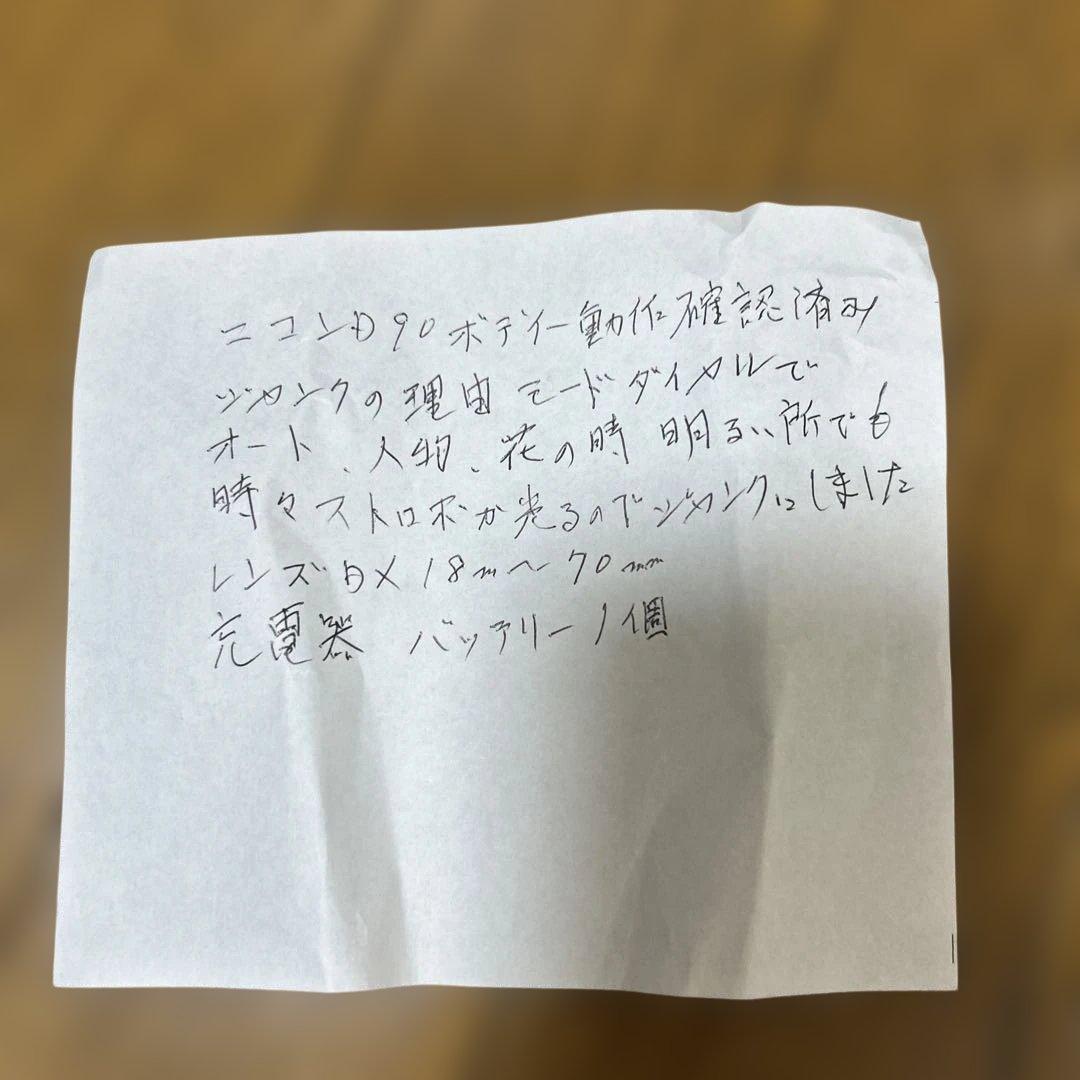 ニコンD90ボディー動作確認済み
ジャンクの理由 モードダイヤルで
オート、人物、花の時 明るい所でも
時々ストロボが光るのでジャンクにしました
レンズDX 18m〜70mm
充電器 バッテリー1個